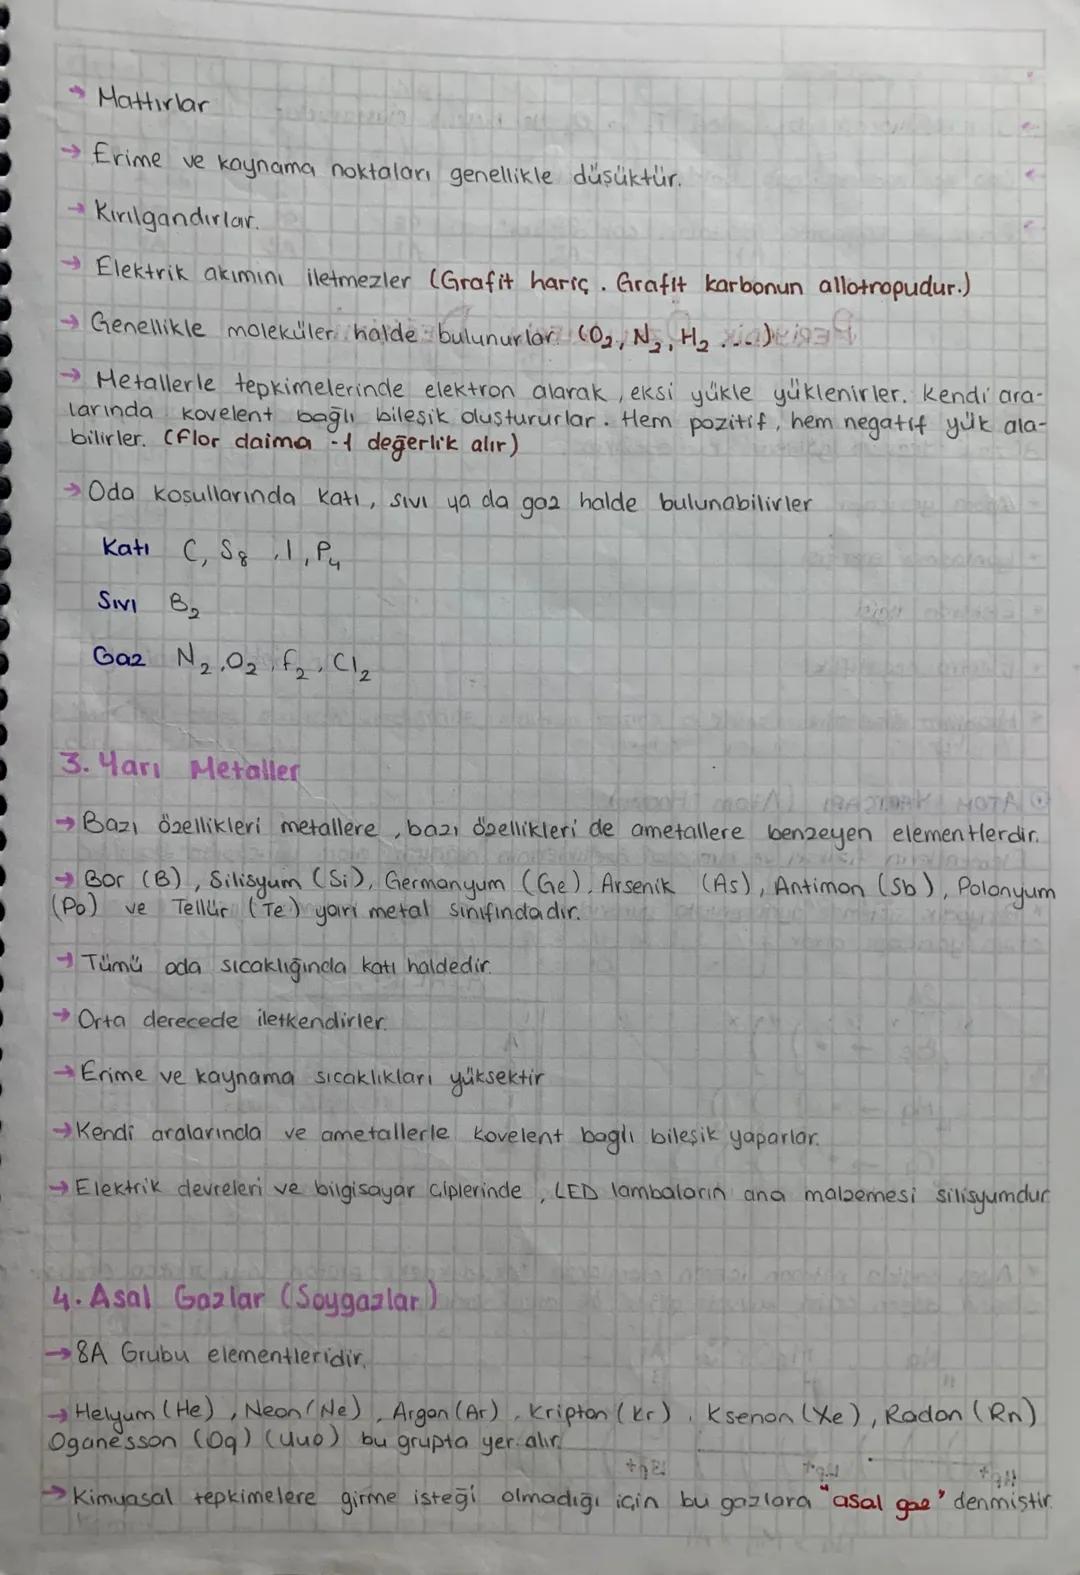 → Mattırlar
→ Erime ve kaynama noktaları genellikle düşüktür.
→ Kırılgandırlar.
→ Elektrik akımını iletmezler (Grafit hariç. Grafit karbonun allotropudur.)
→ Genellikle moleküler halde bulunurlar (O₂, N₂, H₂ ...)
→ Metallerle tepkimelerinde elektron alarak, eksi yükle yüklenirler. Kendi ara-
larında kovelent bağlı bileşik oluştururlar. Hem pozitif, hem negatif yük ala-
bilirler. (Flor daima -1 değerlik alır)
→ Oda koşullarında katı, sıvı ya da gaz halde bulunabilirler
Katı C, S₈, I, P₄
Sıvı B₂
Gaz N₂, O₂, F₂, Cl₂
3. Yarı Metaller
→ Bazı özellikleri metallere, bazı özellikleri de ametallere benzeyen elementlerdir.
→ Bor (B), Silisyum (Si), Germanyum (Ge), Arsenik (As), Antimon (Sb), Polonyum
(Po) ve Tellür (Te) yarı metal sınıfındadır.
→ Tümü oda sıcaklığında katı haldedir.
→ Orta derecede iletkendirler.
→ Erime ve kaynama sıcaklıkları yüksektir
→ Kendi aralarında ve ametallerle kovelent bağlı bileşik yaparlar.
→ Elektrik devreleri ve bilgisayar çiplerinde, LED lambaların ana malzemesi silisyumdur
4. Asal Gazlar (Soygazlar)
→ 8A Grubu elementleridir.
→ Helyum (He), Neon (Ne), Argon (Ar), Kripton (Kr), Ksenon (Xe), Radon (Rn)
Oganesson (Og) (Uuo) bu grupta yer alır.
→ Kimyasal tepkimelere girme isteği olmadığı için bu gazlara "asal gaz" denmiştir.